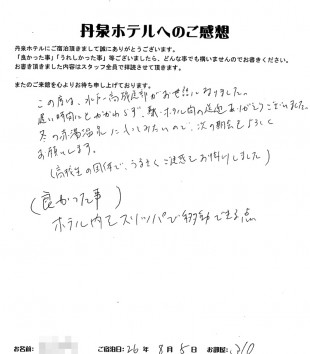 丹泉ホテルへのご感想
丹泉ホテルにご宿泊頂きまして誠にありがとうございます。
「良かった事」「うれしかった事」等ございましたら、どんな事でも構いませんのでお書きください。
お書き頂きました内容はスタッフ全員で拝読させて頂きます。
またのご来館を心よりお待ち申し上げております。
この度は、水戸一高旅行部がお世話になりました。
遅い時間にもかかわらず、駅-ホテル間の送迎ありがとうございました。
冬の赤湯温泉に入ってみたいので、次の機会もよろしく
お願いします。
(高校生の団体で、うるさくご迷惑をお掛けしました)
(良かった事)
ホテル内でスリッパで移動できる点
お名前: ご宿泊日: 26年 8月 5日 お部屋: 310